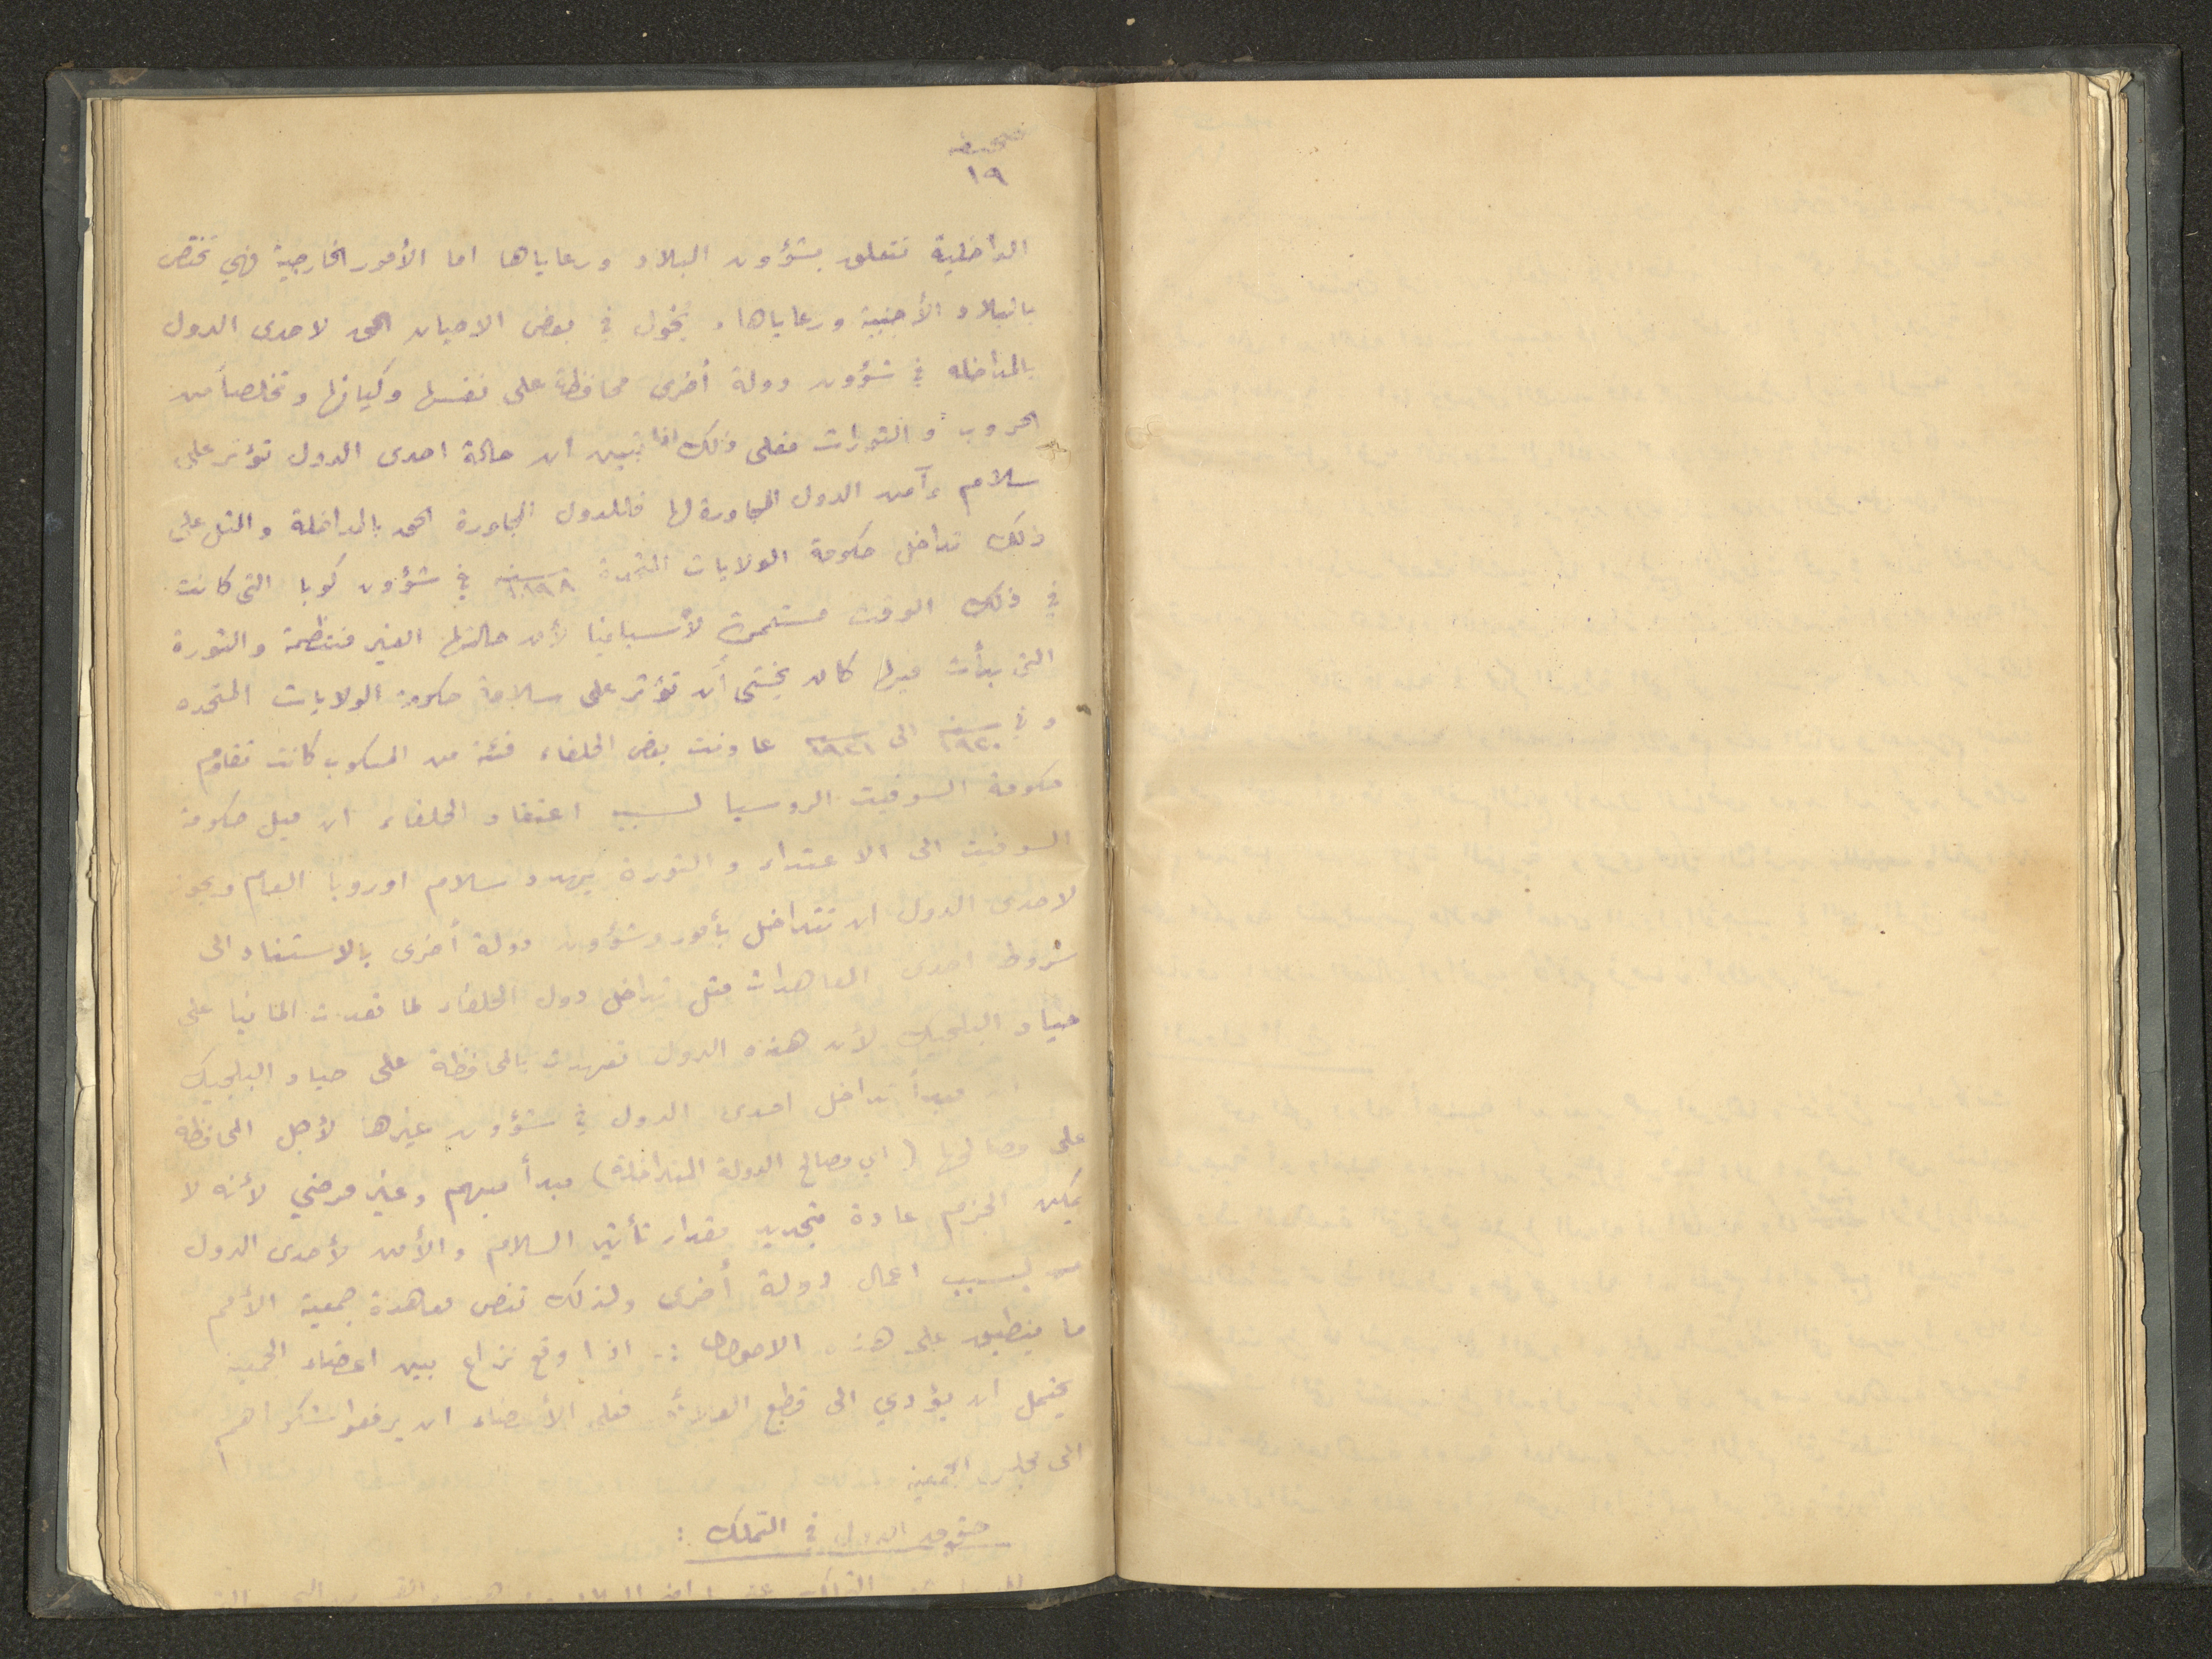 صحيفه
١٩
الداخلية تتعلق بشؤون البلاد ورعاياها اما الأمور الخارجية فهي تختص
بالبلاد الأجنبية ورعاياها. يخول في بعض الاحيان الحق لاحدى الدول
بالمداخله في شؤون دولة أخرى محافظة على نفسها وكيانها وتخلصاً من
الحروب والثورات فعلى ذلك اذا تبين ان حالة احدى الدول تؤثر على
سلام وآمن الدول المجاورة لها فللدول المجاورة الحق بالمداخلة والمثل على
ذلك تداخل حكومة الولايات المتحدة سنه ١٨٩٨ في شؤون كوبا التى كانت
في ذلك الوقت مستعمرة لأسبانيا لأن حالتها الغير منتظمة والثورة
التى بدأت فيها كان يخشى أن تؤثر على سلامة حكومة الولايات المتحده
وفي سنه ١٩٢٠ الى سنه ١٩٢١ عاونت بعض الحلفاء فئة من المسكوب كانت تقاوم
حكومة السوفيت الروسيا لسبب اعتقاد الحلفاء ان ميل حكومة
السوفيت الى الاعتداء والثورة يهدد سلام اوروبا العام ويجوز
لاحدى الدول ان تتداخل بأمور وشؤون دولة أخرى بالاستناد الى
شروط احدى المعاهدات مثل تداخل دول الحلفاء لما تعدت المانيا على
حياد البلجيك لأن هذه الدول تعهدت بالمحافظة على حياد البلجيك
ان مبدأ تداخل احدى الدول في شؤون غيرها لأجل المحافظة
على مصالحها (اي مصالح الدولة المتداخلة) مبدأ مبهم وغير مرضي لأنه لا
يمكن الجزم عادة بتحديد مقدار تأثير السلام والأمن لأحدى الدول
بسبب اعمال دولة أخرى ولذلك تنص معاهدة جمعية الأمم
ما ينطبق على هذه الاصول :- اذا وقع نزاع بين اعضاء الجمعية
يحتمل ان يؤدي الى قطع العلائق فعلى الأعضاء ان يرفعوا شكواهم
الى مجلس الجمعية
حقوق الدول في التملك :